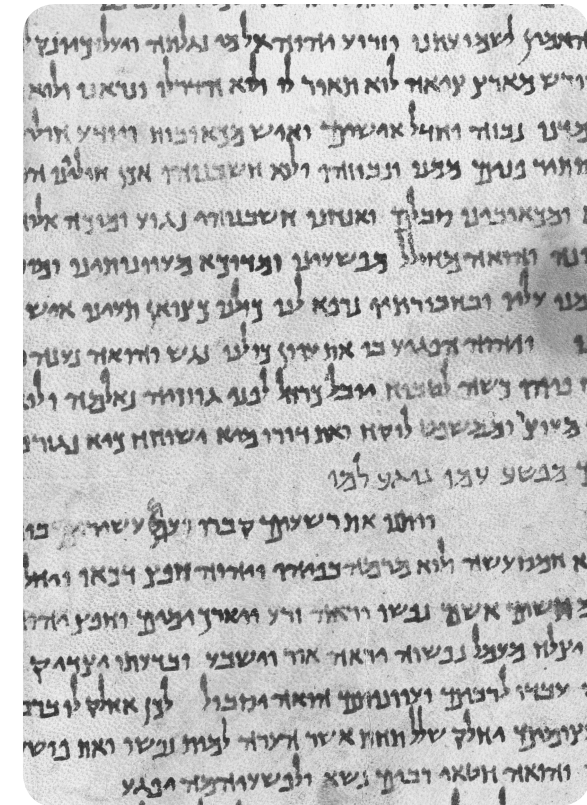 האמין לשמועתנו וזרוע יהוה אל מי נגלתה ויעל כיונק
מארץ ציה לוא תואר לו ולוא הדר לו ונראנו ולוא
נבזה וחדל אישים ואיש מכאובות ויודע חולי
פנים ממנו ונבוזהו ולוא חשבנוהו אכן חוליינו
ומכאובינו סבלם ואנחנו חשבנוהי נגוע ומוכה
והואה מחולל מפשעינו ומדוכא מעוונותינו
עליו ובחבורתיו נרפא לנו כולנו כצואן תעינו איש
ויהוה הפגיע בו את עוון כולנו נגש והואה
כשה לטבוח יובל כרחל לפני גוזזיה נאלמה
וממשפט לוקח ואת דורו מיא ישוחח כיא
מפשע עמו נוגע למו
ויתנו את רשעים קברו ועם עשיר
חמס עשה ולוא מרמה בפיהו ויהוה חפץ דכאו
תשים אשם נפשו יראה זרע ויארך ימים וחפץ
יצלח מעמל נפשוה יראה אור וישבע ובדעתו יצדיק
עבדו לרבים ועוונותם הואה יסבול לכן אחלק לו
יחלק שלל תחת אשר הערה למות נפשו ואת
והואה חטאי רבים נשא ולפשעיהמה יפגע